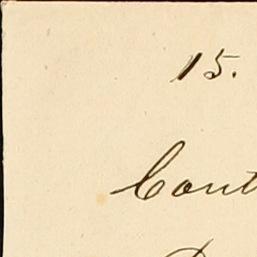 15.
Cont